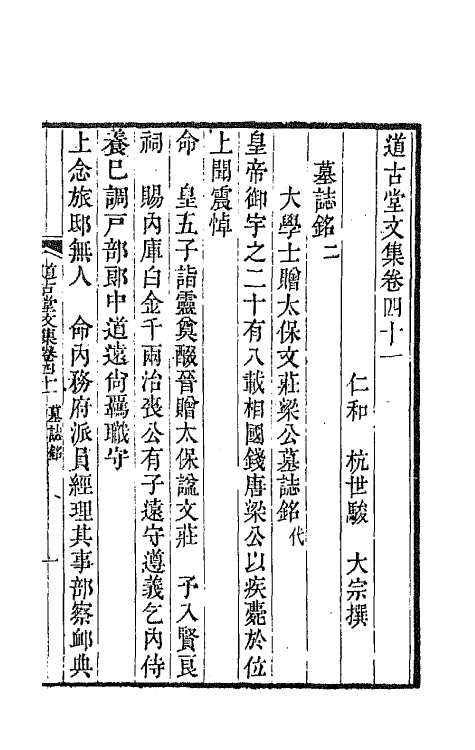 道古堂文集卷四十一
仁和　杭世駿　大宗撰
墓誌銘二
大學士贈太保文莊梁公墓誌銘代
皇帝御宇之二十有八載相國錢唐梁公以疾薨於位
上聞震悼
命　皇五子詣靈奠醊晉贈太保諡文莊　予入賢良
祠　賜內庫白金千兩治喪公有子遠守遵義乞內侍
養已調戸部郎中道遠尙羈職守
上念旅邸無人　命內務府派員經理其事部察卹典
道古堂文集卷四十一　墓誌銘　一